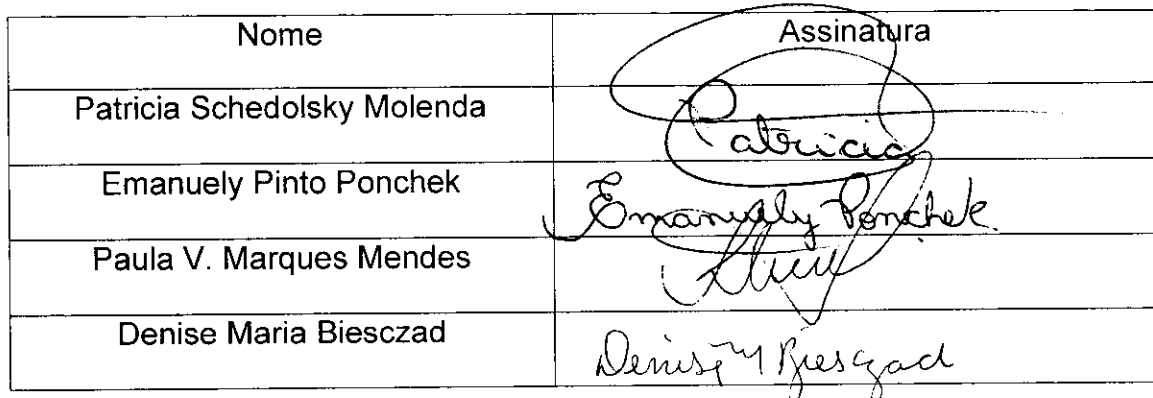 Nome Assinatura
Patricia Schedolsky Molenda Patricia
Emanuely Pinto Ponchek Emanuely Ponchek
Paula V. Marques Mendes
Denise Maria Biesczad Denise M Biesczad